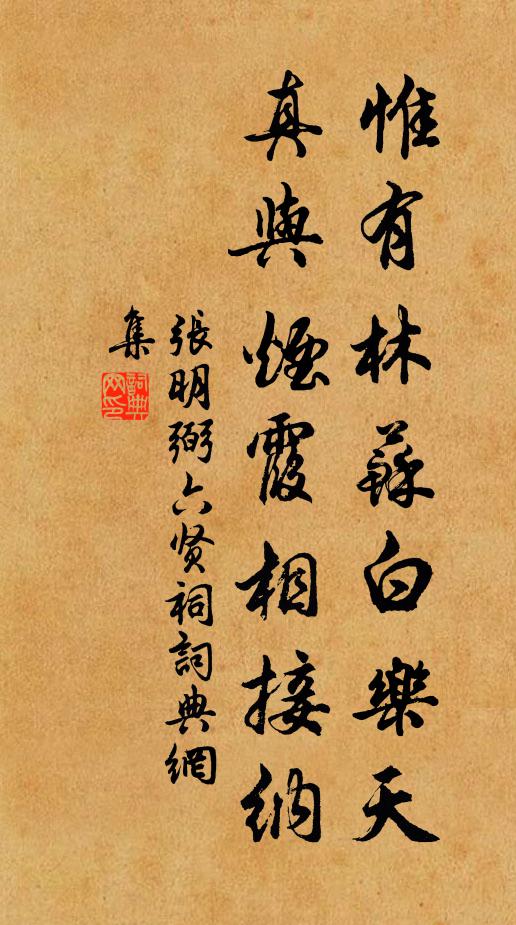 惟有林蘇白樂天
真與煙霞相接納
張明弼六贤祠詞典網
集
詞典
网印